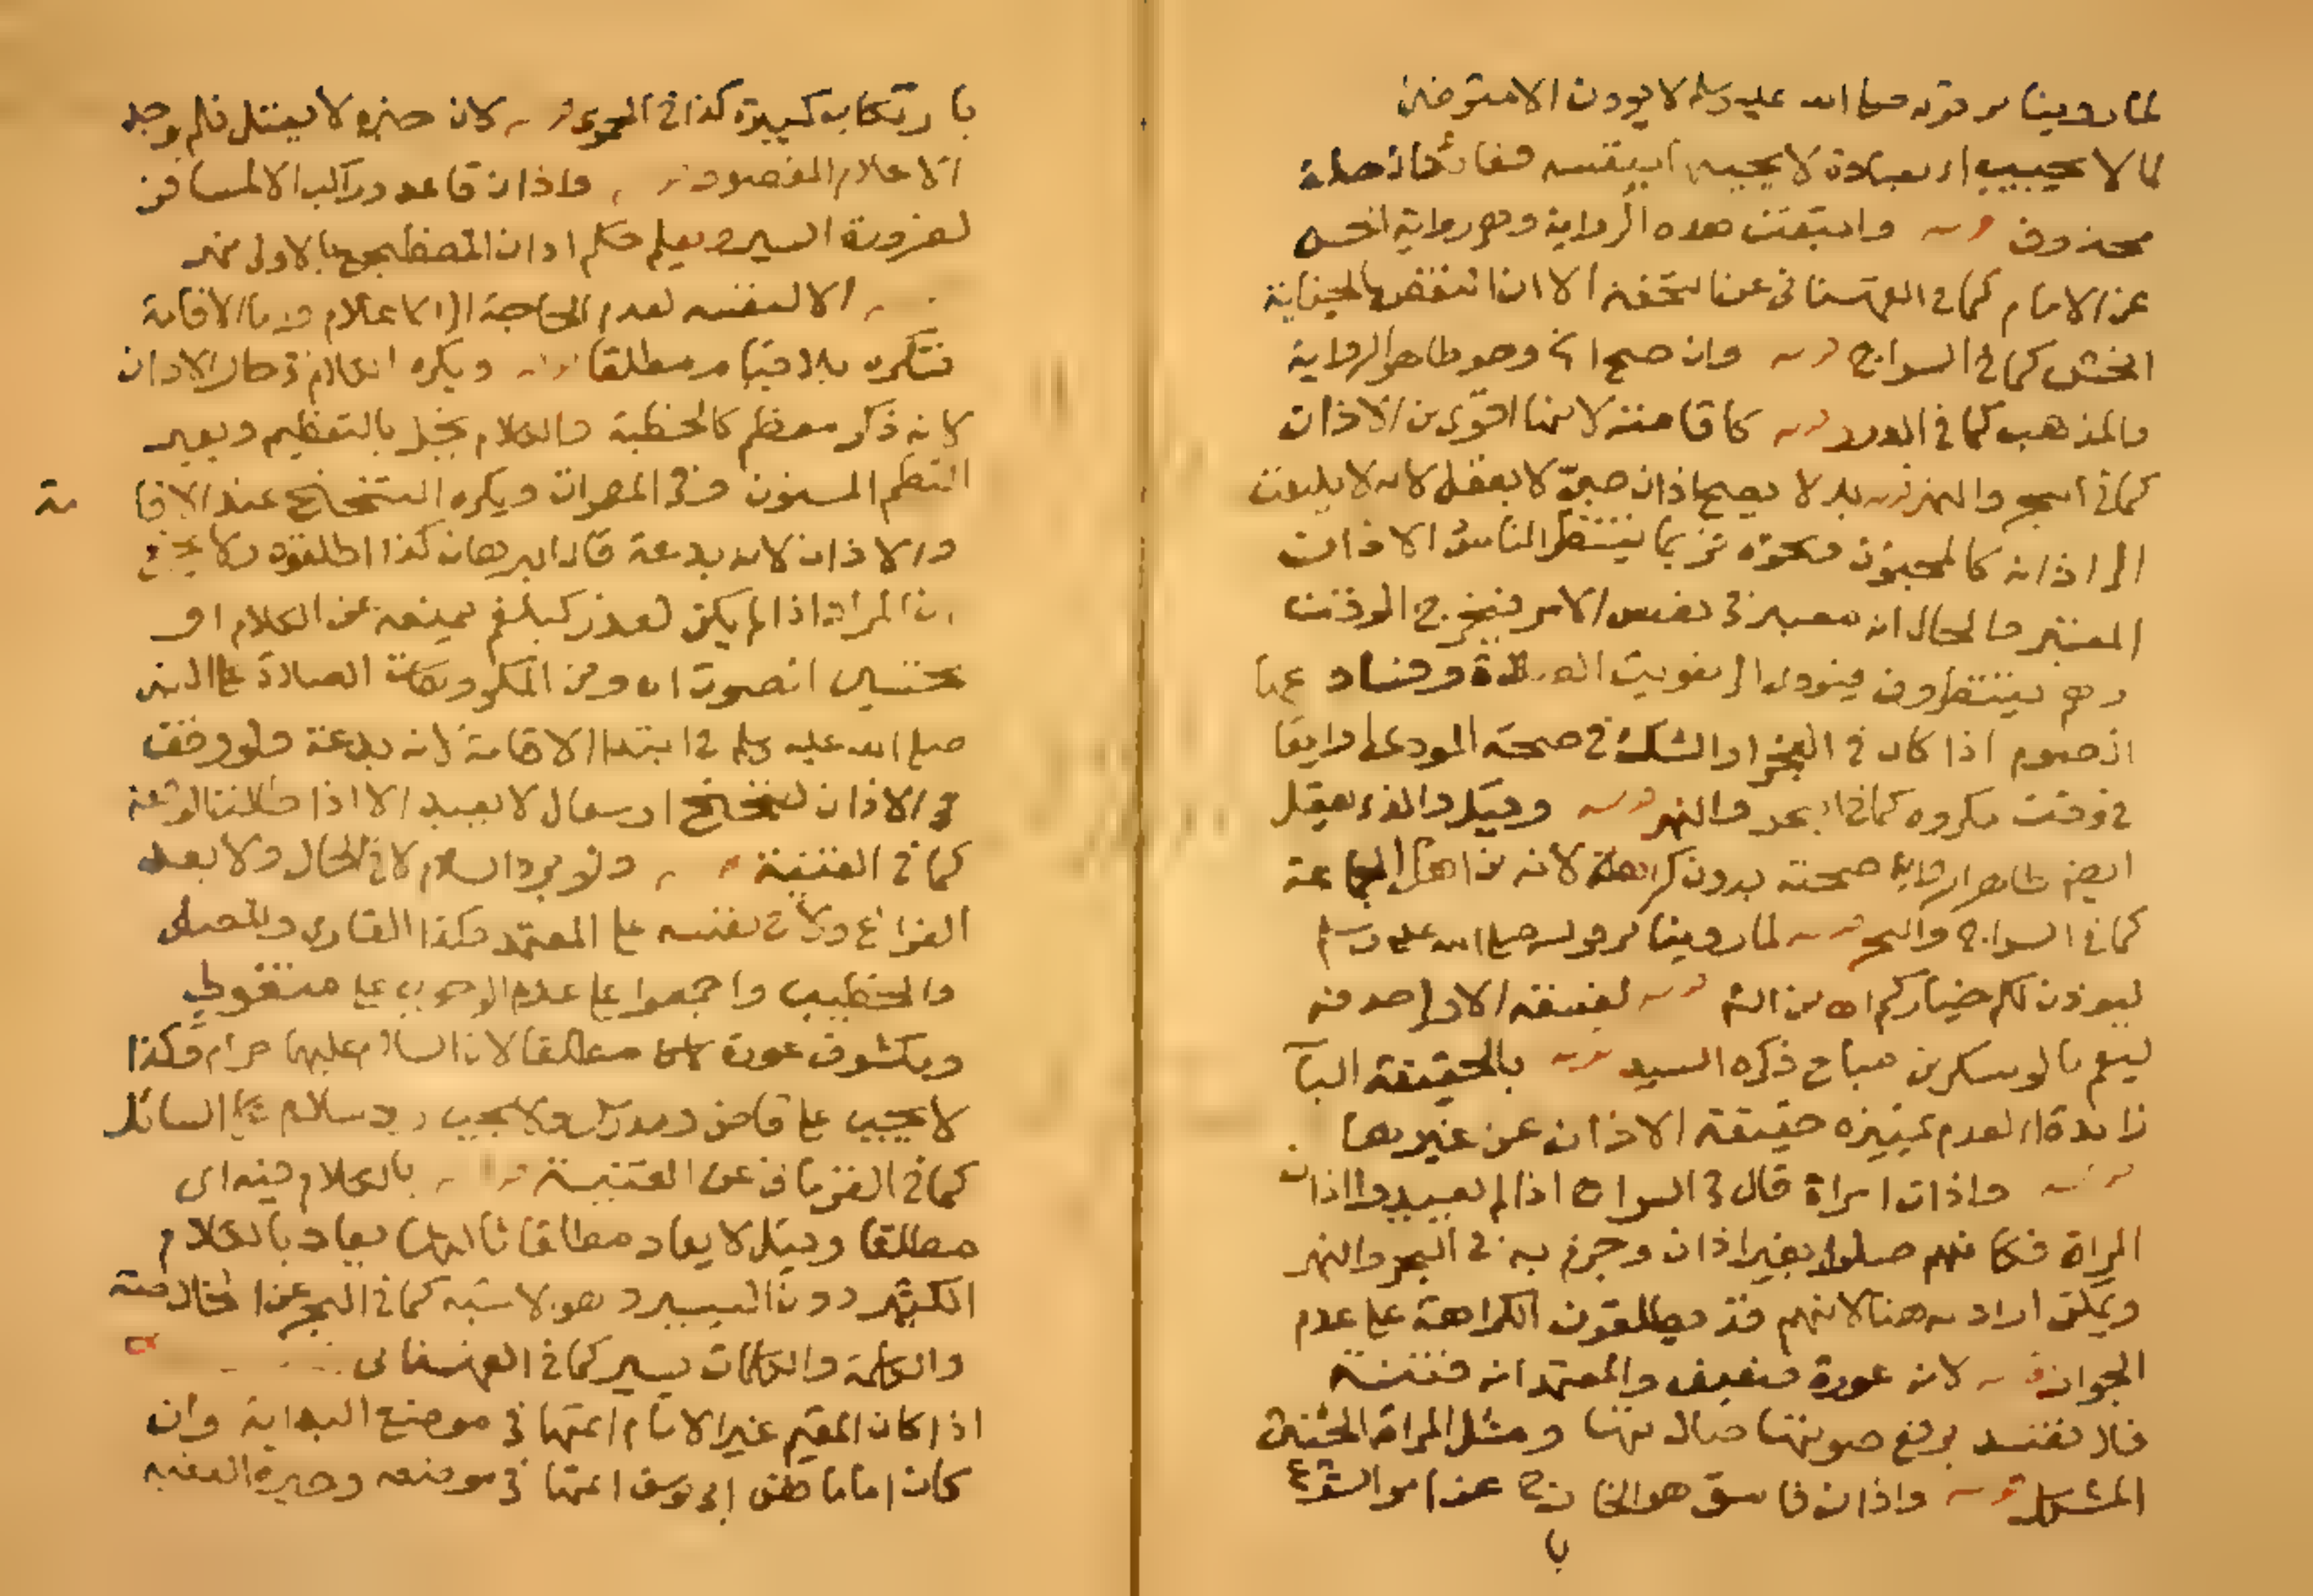 لما روينا من قوله صلى الله عليه وسلم لا يوذن الا متوضئ
لما لا يجيب اى بعبادة لا يجيب
محذوف قوله واتبعت هذه الرواية وهى رواية الحسن
عن الامام كما فى القهستانى عن التحفة الا ان
كما فى السراج قوله وان صح اى وهو ظاهر الرواية
والمذهب كما فى الدرر قوله كاقامته لانها اقوى من الاذان
كما فى البحر والنهر قوله بل لا يصح اذان صبى لا يعقل لانه لا يلتفت
الى اذانه كالمجنون ونحوه فربما ينتظر الناس الاذان
المعتبر والحال انه معتبر فى نفس الامر فيخرج الوقت
وهم ينتظرون فيودى الى تفويت الصلاة وفساد
الصوم اذا كان فى الفجر او الشك فى صحة المودى او ايقاعها
فى وقت مكروه كما فى البحر والنهر قوله وقيل والذى يعقل
ايضا ظاهر الرواية صحته بدون كراهة لانه من اهل الجماعة
كما فى السراج والبحر قوله لما روينا من قوله صلى الله عليه وسلم
ليوذن لكم خياركم اه من الشرح قوله لفسقه الاولى حذفه
ليعم ما لو سكر من مباح ذكره السيد قوله بالحقيقة البآ
زايدة اى لعدم تمييزه حقيقة الاذان عن غيرها
قوله واذان امراة قال فى السراج اذا لم يعيدوا اذان
المراة فكانهم صلوا بغير اذان وجزم به فى البحر والنهر
ويمكن ارادته هنا لانهم قد يطلقون الكراهة على عدم
الجواز قوله لانه عورة ضعيف والمعتمد انه فتنة
فلا تفسد برفع صوتها صلاتها ومثل المراة الخنثى
المشكل قوله واذان فاسق هو الخارج عن امر الشرع
با
بارتكاب كبيرة كذا فى الحموى قوله لان خبره لا يقبل فلم يوجد
الاعلام المقصود قوله واذان قاعد وراكب الا لمسافر
لضرورة السير ويعلم حكم اذان المضطجع بالاولى
الا لنفسه لعدم الحاجة الى الاعلام واما الاقامة
فتكره بلا قيام مطلقا قوله ويكره الكلام فى خلال الاذان
لانه ذكر معظم كالخطبة والكلام يخل بالتعظيم ويغير
النظم المسنون وفى المضمرات ويكره التنحنح عند الاقامة
والاذان لانه بدعة قال البرهان كذا اطلقوه وكان
ان المراد اذا لم يكن لعذر كبلغم يمنعه عن الكلام او
تحسين الصوت اه ومن المكروهات الصلاة على النبى
صلى الله عليه وسلم فى ابتدا الاقامة لانه بدعة ولو وقف
فى الاذان لتنحنح او سعال لا يعيد الا اذا طالت الوقفة
كما فى القنية قوله ولو برد السلام لا فى الحال ولا بعد
الفراغ ولا فى نفسه على المعتمد وكذا القارى والمصلى
والخطيب واجمعوا على عدم الوجوب على متغوط
ومكشوف عورة مطلقا لان السلام عليهما حرام وكذا
لا يجب على قاض ومدرس ولا يجب رد سلام السائل
كما فى الغزى عن القنية قوله بالكلام فيه اى
مطلقا وقيل لا يعاد مطلقا ثالثها يعاد بالكلام
الكثير دون اليسير وهو الاشبه كما فى البحر عن الخلاصة
والكلمة والكلمات يسير كما فى القهستانى
اذا كان المقيم غير الامام اتمها فى موضع البداية وان
كان اماما فعن ابى يوسف اتمها فى موضعه وخيره الفقيه